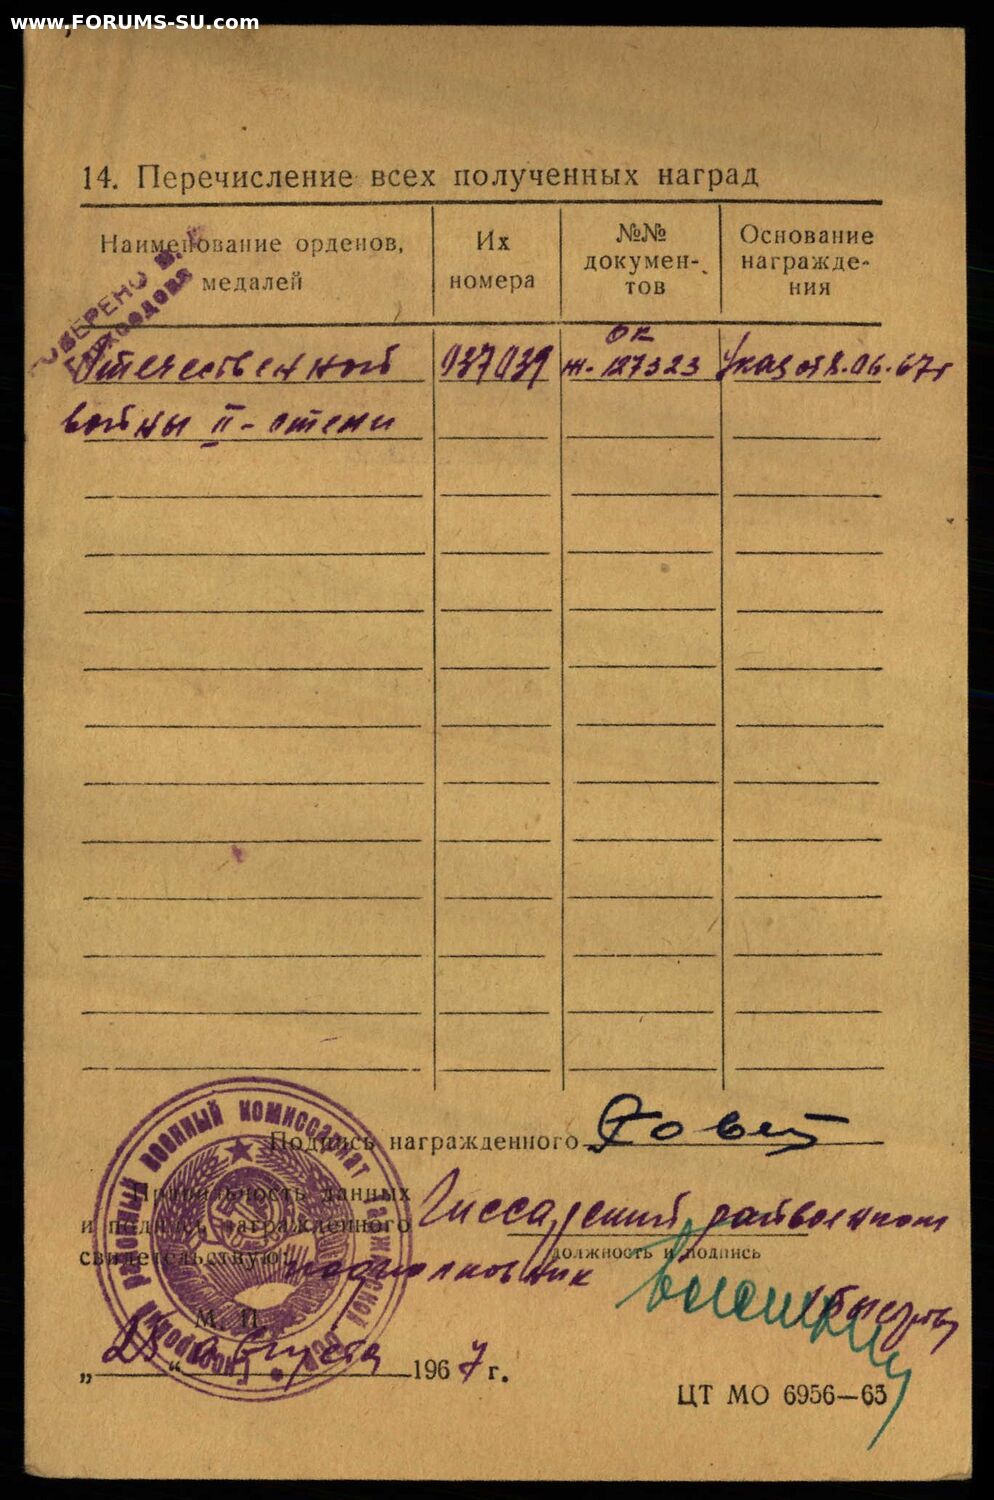 www.FORUMS-SU.com
14. Перечисление всех полученных наград
Наименование орденов, медалей
Их номера
№№ документов
Основание награждения
Отечественной 937039 ОК М-127323 Указ от 8.06.67г
войны II-степени
Подпись награжденного
Правильность данных
и подпись награжденного
свидетельствую:
Гиссарский райвоенком
должность и подпись
подполковник
М. П.
„28“ августа 1967 г.
ЦТ МО 6956—65
районный военный комиссариат